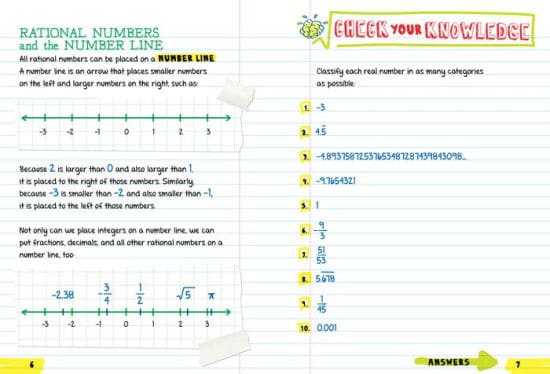 RATIONAL NUMBERS
and the NUMBER LINE
All rational numbers can be placed on a NUMBER LINE.
A number line is an arrow that places smaller numbers
on the left and larger numbers on the right, such as:
-3 -2 -1 0 1 2 3
Because 2 is larger than 0 and also larger than 1,
it is placed to the right of those numbers. Similarly,
because -3 is smaller than -2 and also smaller than -1,
it is placed to the left of those numbers.
Not only can we place integers on a number line, we can
put fractions, decimals, and all other rational numbers on a
number line, too:
-2.38 -3/4 1/2 √5 π
-3 -2 -1 0 1 2 3
6
CHECK YOUR KNOWLEDGE
Classify each real number in as many categories
as possible.
1. -3
2. 4.5̅
3. -4.89375872537653487287439843098...
4. -9.7654321
5. 1
6. -9/3
7. 51/53
8. 5.6̅7̅8̅
9. 1/45
10. 0.001
ANSWERS
7